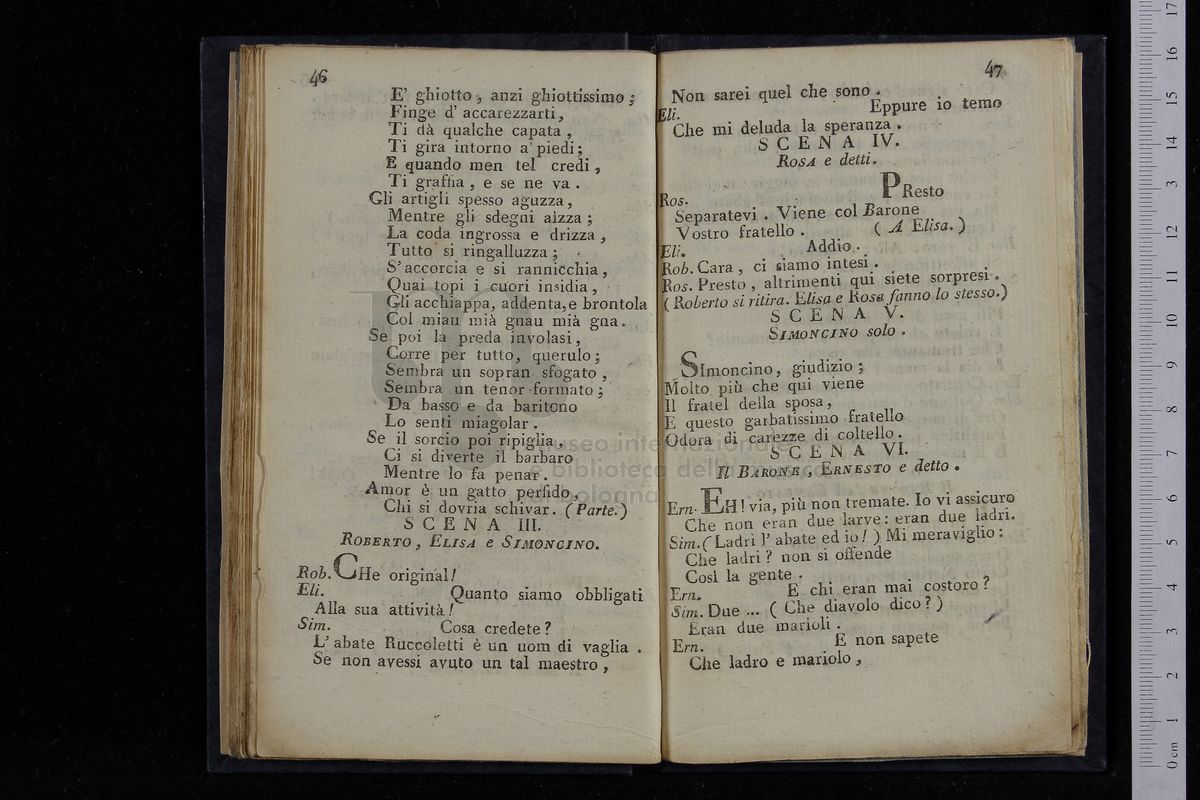 46
E' ghiotto, anzi ghiottissimo;
Finge d' accarezzarti,
Ti dà qualche capata,
Ti gira intorno a' piedi;
E quando men tel credi,
Ti graffia, e se ne va.
Gli artigli spesso aguzza,
Mentre gli sdegni alzza;
La coda ingrossa e drizza,
Tutto si ringalluzza;
S' accorcia e si rannicchia,
Quai topi i cuori insidia,
Gli acchiappa, addenta, e brontola
Col miau mià gnau mià gna.
Se poi la preda involasi,
Corre per tutto, querulo;
Sembra un sopran sfogato,
Sembra un tenor formato;
Da basso e da baritono
Lo senti miagolar.
Se il sorcio poi ripiglia,
Ci si diverte il barbaro
Mentre lo fa penar.
Amor è un gatto perfido,
Chi si dovria schivar. (Parte.)
SCENA III.
ROBERTO, ELISA e SIMONCINO.
Rob. CHe original!
Eli. Quanto siamo obbligati
Alla sua attività!
Sim. Cosa credete?
L' abate Ruccoletti è un uom di vaglia.
Se non avessi avuto un tal maestro,
47
Non sarei quel che sono.
Eli. Eppure io temo
Che mi deluda la speranza.
SCENA IV.
ROSA e detti.
Ros. PResto
Separatevi. Viene col Barone
Vostro fratello. (A Elisa.)
Eli. Addio.
Rob. Cara, ci siamo intesi.
Ros. Presto, altrimenti qui siete sorpresi.
(Roberto si ritira. Elisa e Rosa fanno lo stesso.)
SCENA V.
SIMONCINO solo.
SImoncino, giudizio;
Molto più che qui viene
Il fratel della sposa,
E questo garbatissimo fratello
Odora di carezze di coltello.
SCENA VI.
Il BARONE, ERNESTO e detto.
Ern. EH! via, più non tremate. Io vi assicuro
Che non eran due larve: eran due ladri.
Sim. (Ladri l' abate ed io!) Mi meraviglio:
Che ladri? non si offende
Così la gente.
Ern. E chi eran mai costoro?
Sim. Due ... (Che diavolo dico?)
Eran due marioli.
Ern. E non sapete
Che ladro e mariolo,
museo internazionale
e biblioteca della musica
di bologna
0 cm 1 2 3 4 5 6 7 8 9 10 11 12 13 14 15 16 17